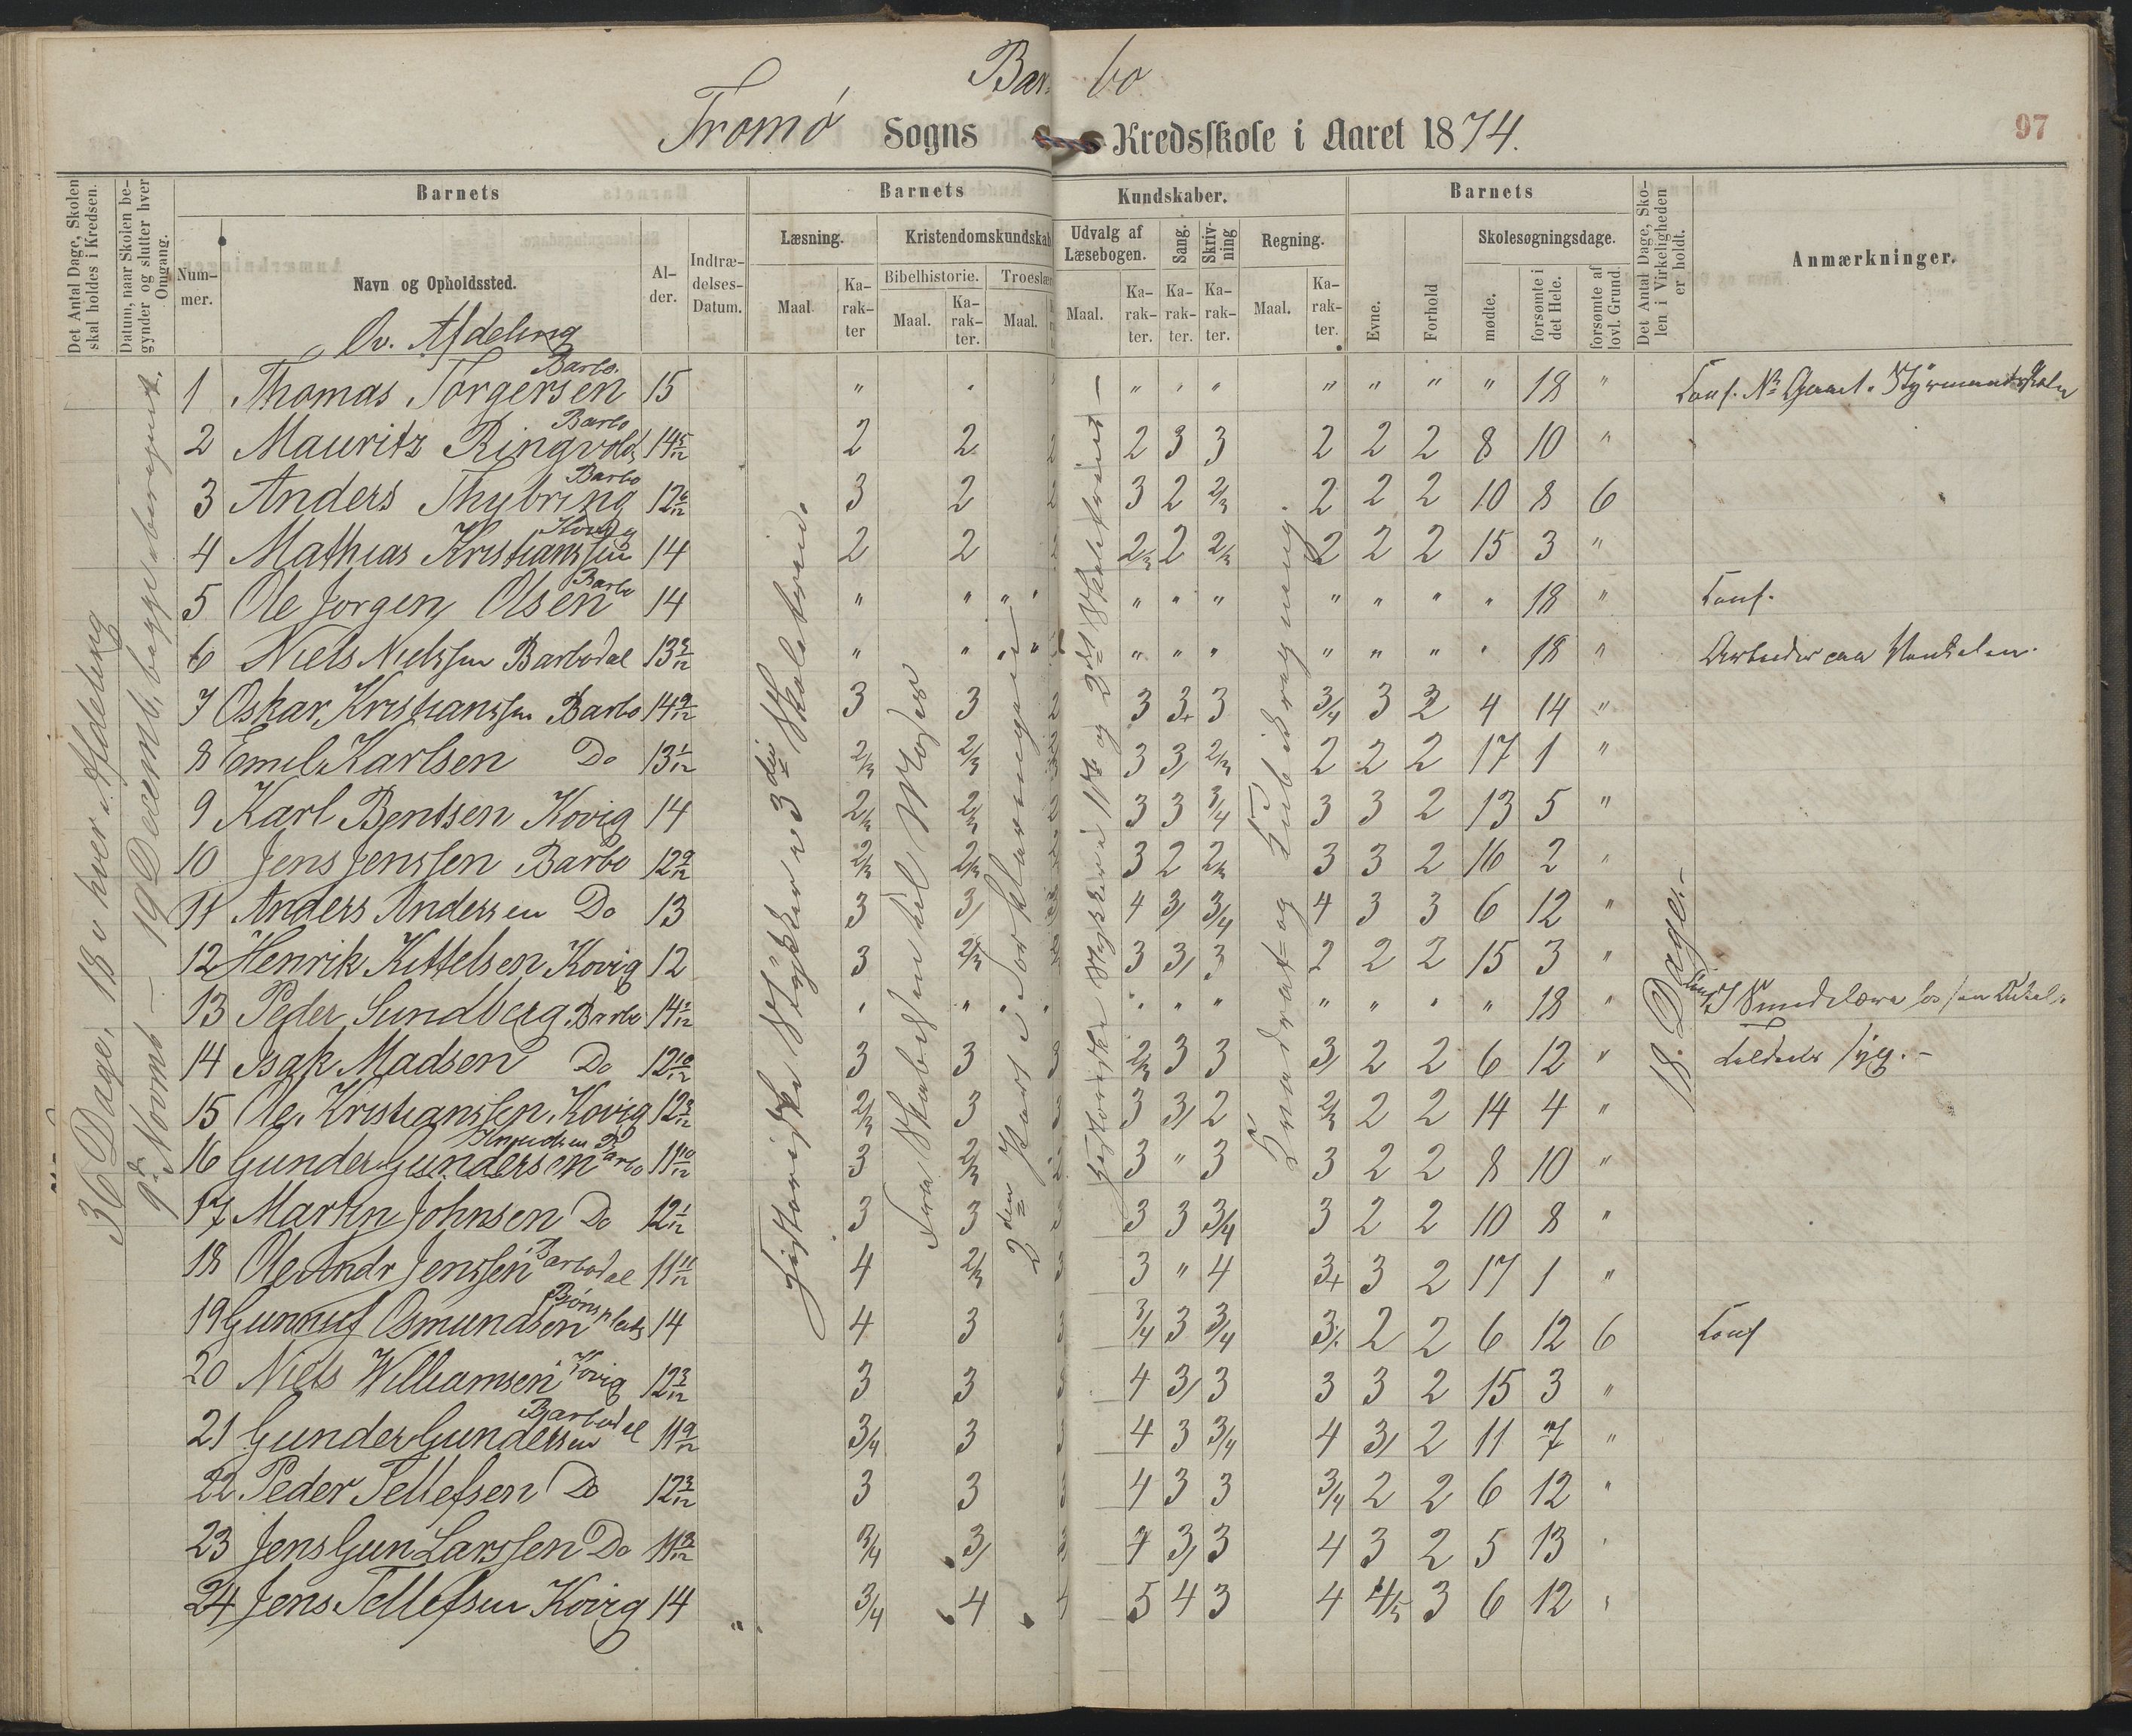 Barbo
Tromø Sogns Kredsskole i Aaret 1874.
97
Det Antal Dage, Skolen skal holdes i Kredsen.
Datum, naar Skolen begynder og slutter hver Omgang.
Barnets
Nummer.
Navn og Opholdssted.
Alder.
Indtrædelses-Datum.
Barnets Kundskaber.
Læsning.
Maal
Karakter
Kristendomskundskab
Bibelhistorie.
Maal.
Karakter.
Troeslær
Maal.
Udvalg af Læsebogen.
Maal.
Karakter.
Sang.
Karakter.
Skrivning
Karakter.
Regning.
Maal.
Karakter.
Barnets
Evne.
Forhold
Skolesøgningsdage.
mødte.
forsømte i det Hele.
forsømte af lovl. Grund.
Det Antal Dage, Skolen i Virkeligheden er holdt.
Anmærkninger.
Øv. Afdeling
36 Dage, 18 i hver Afdeling
9de Novemb — 19 Decemb, begge iberegnet.
Historiske Stykker i 3die Skoletrin.
2den Part i Forklaringen
Historiske Stykker i 1ste og 2det Skoletrinet —
Kvadrat= og Kubikregning.
18. Dage.
1 Thomas Torgersen Barbo. 15 " " " " " " " " 18 "
2 Mauritz Ringvold Barbo 14 5/12 2 2 2 2 3 3 2 2 2 8 10 "
3 Anders Thybring Barbo 12 6/12 3 2 2 3 2 2/3 2 2 2 10 8 6
4 Mathias Kristianssen 14 2 2 2 2/3 2 2/3 2 2 2 15 3 "
5 Ole Jorgen Olsen Barbo 14 " " " " " " " " " " 18 " Conf.
6 Niels Nielssen Barbodal 13 3/12 " " " " " " " " " " 18 "
7 Oskar Kristianssen Barbo 14 9/12 3 3 2 3 3+ 3 3/4 3 2 4 14 "
8 Emil Karlsen Do 13 1/12 2/3 2/3 3 3/ 2/3 2 2 2 17 1 "
9 Karl Bentsen Kovig 14 2/3 2/3 2 3 3 3/4 3 3 2 13 5 "
10 Jens Jenssen Barbo 12 9/12 2/3 2/3 3 2 2/3 3 3 2 16 2 "
11 Anders Anderssen Do 13 3 3/ 4 3/ 3/4 4 3 3 6 12 "
12 Henrik Kittelsen Kovig 12 3 2/3 3 3/ 3 2 2 2 15 3 "
13 Peder Sundberg Barbo 14 1/12 " " " " " " " " " " 18 "
14 Isak Madsen Do 12 10/12 3 3 3 2/3 3 3 3/ 2 2 6 12 " tildels syg. —
15 Ole Kristianssen Kovig 12 3/12 2/3 3 3 3 3/ 2 2/3 2 2 14 4 "
16 Gunder Gundersen Barbo 11 10/12 3 2/3 2 3 " 3 3 2 2 8 10 "
17 Martin Johnsen Do 12 1/12 3 3 3 3 3 3/4 3 2 2 10 8 "
18 Ole Andr Jenssen Barbodal 11 11/12 4 2/3 3 3 " 4 3+ 3 2 17 1 "
19 Gunnuf Osmundsen 14 4 3 3 3/4 3 3/4 3 2 2 6 12 6 Conf
20 Niels Williamsen Kovig 12 3/12 3 3 3 4 3/ 3 3 3 2 15 3 "
21 Gunder Gunderssen Barbodal 11 9/12 3/4 3 3 4 3 3/4 4 3/ 2 11 7 "
22 Peder Tellefsen Do 12 3/12 3 3 3 4 3 3 3/4 2 2 6 12 "
23 Jens Gun Larssen Do 3/4 3/ 3 4 3/ 3 4 3 2 5 13 "
24 Jens Tellefsen Kovig 14 3/4 4 4 5 4 3 4 4/5 3 6 12 "